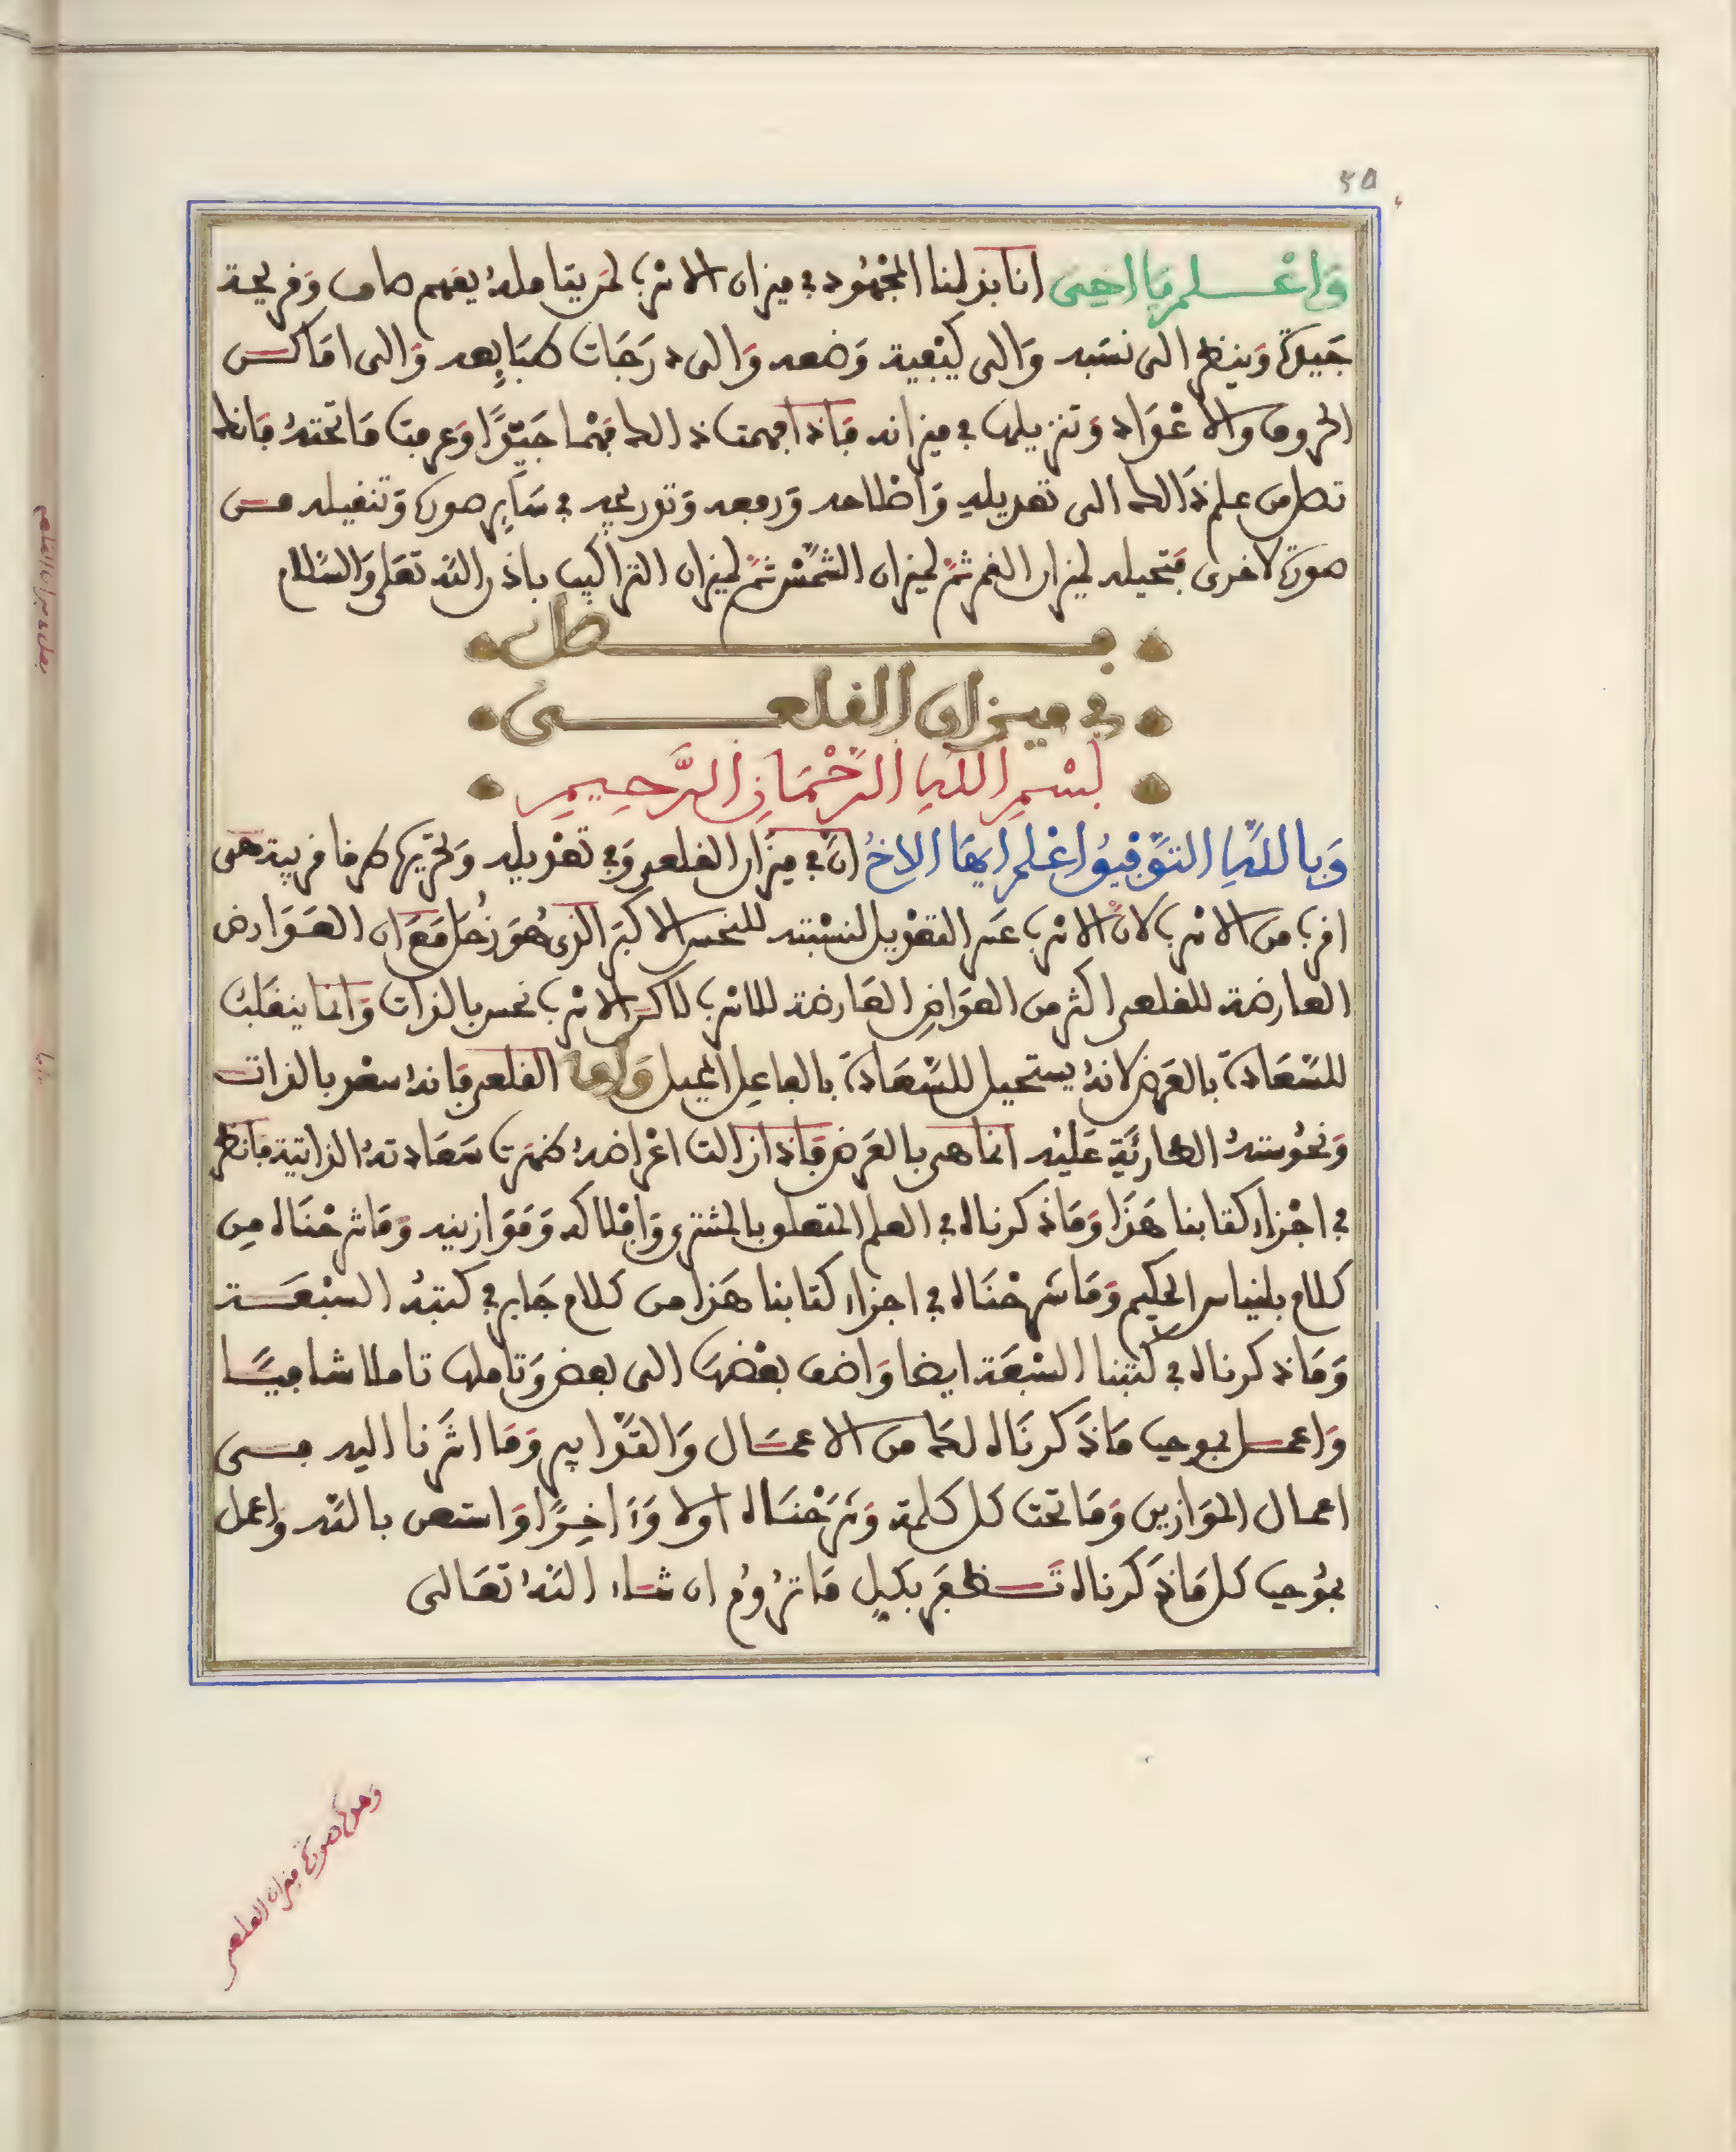 ٤٥
وَاعْلم يَا اخِى انا بذلنا المجْهُود في ميزان الاسْرب لمن يتامله بفهم صاف وَقريحة
جَيدة وَينظر الى نسَبه وَالى كيْفية وَضعه وَالى دَرَجَات طبَايِعه وَالى امَاكن
الحروف والاعْوَاد وَتنزيلها في ميزانه فَاذا فهمت ذالك فهْما جَيّدًا وَعرفت مَا تحته فانك
تصل من علم ذَالك الى تعديله وَاصْلاحه وَرفعه وَتدريجه في سَايِر صوره وَتنقيله من
صورة لاخرى فتحيله لميزان القمر ثمّ لميزان الشمْس ثمّ لميزان التراكيب باذن الله تعَلى وَالسّلام
فصل
في ميزان القلعى
بسْمِ اللهِ الرَّحْمَانِ الرَّحِيمِ
وَبِاللهِ التوْفِيقُ اعْلم ايهَا الاخُ انّ في ميزَان القلعى وَفي تعْديله وَتحْريرها طرقا قريبة هى
اقرب من الاسْرب لانّ الاسْرب عَسر التعْديل لنسْبته للنحس الاكبَر الذى هُوَ زُحَل مَعَ ان العَوَارض
العارضة للقلعى اكثر من العوَارض العَارضة للاسْرب لاكن الاسْرب نحس بالذات وَانما ينقلبُ
للسّعَادة بالعَرض لانهُ يستحيل للسّعَادة بالفاعِل المحيل وَاما القلعى فَانهُ سعْد بالذات
وَنحُوستهُ الطارئَة عَليْه انما هى بالعَرض فَاذا زالت اعْراضهُ ظهَرت سَعَادتهُ الذاتية فانظر
في اجْزاء كتابنا هَذَا وَمَا ذكرناه في العلم المتعلق بالمشترى وَافْلاكه وَمَوَازينه وَمَا شرحْنَاه مِن
كلام بلنياس الحكيم وَمَا شرحْنَاه في اجزاء كتابنا هَذا من كلام جَابر في كتبهُ السبْعَة
وَمَا ذكرناه في كتبنا السبْعَة ايضا وَاضف بعْضهَا الى بعض وَتاملها تاملا شافيًا
وَاعمل بموجب مَا ذَكرنَاه لك من الاعمَال وَالتدَابير وَمَا اشرْنا اليه فى
اعمال الموَازين وَمَا تحت كل كلمة وَشرَحْنَاه اولا وَءَاخِرًا وَاستعن بالله واعمل
بمُوجب كل مَا ذَكرناه تَظفَر بكلِ مَا ترُومُ ان شاء اللهُ تعَالى
وَهذه صورَة ميزان القلعى